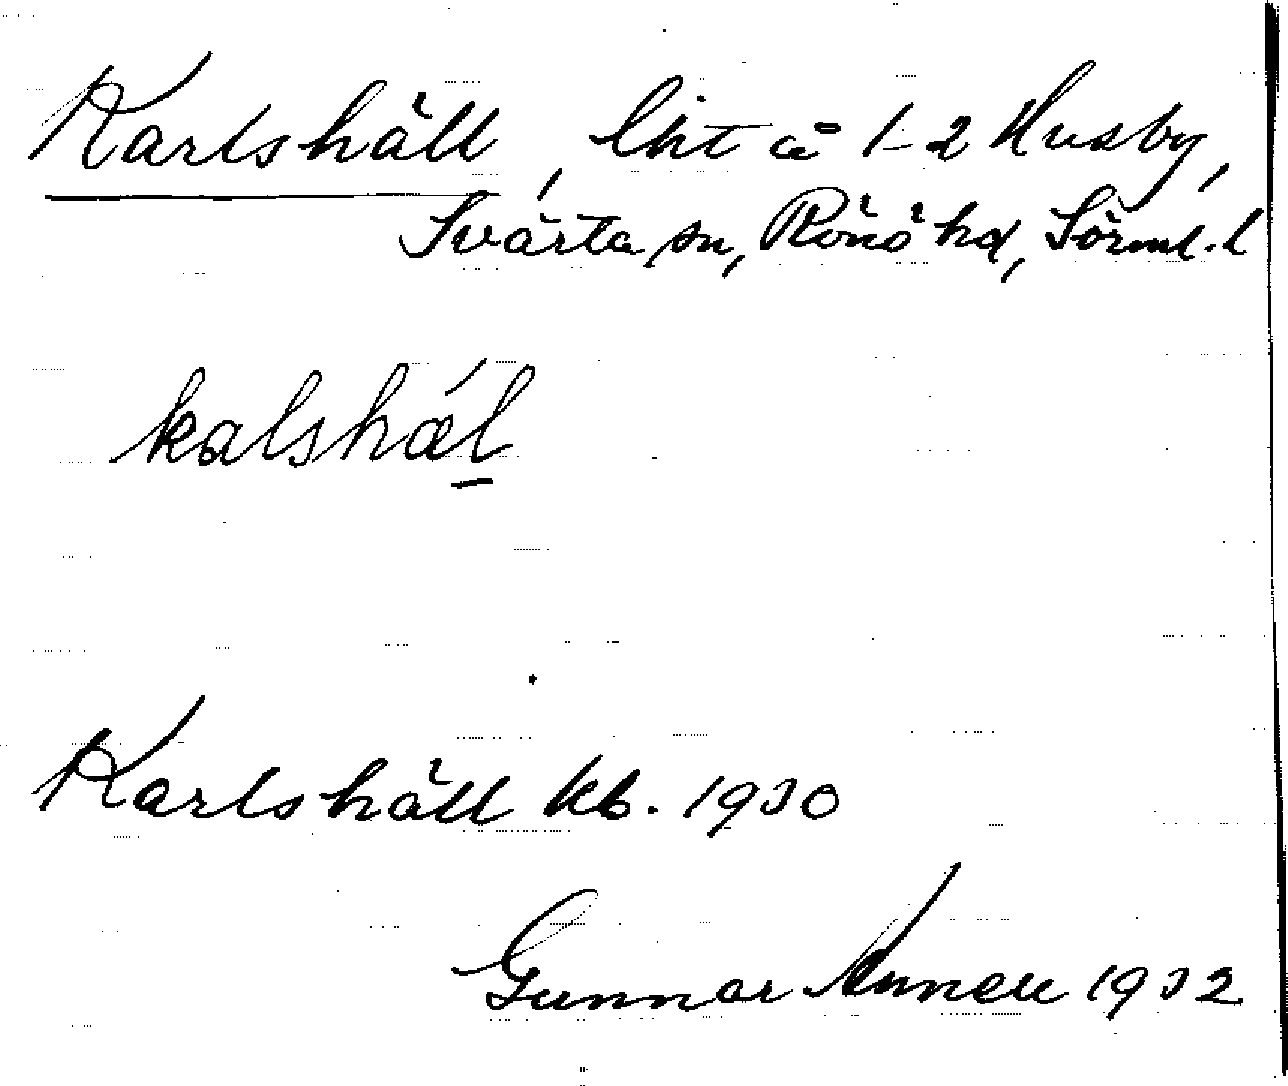 Karlshäll, lht å 1-2 Husby,
Svärta sn, Rönö hd, Sörml. l
kalshæ´l
Karlshäll kb. 1930
Gunnar Annell 1932